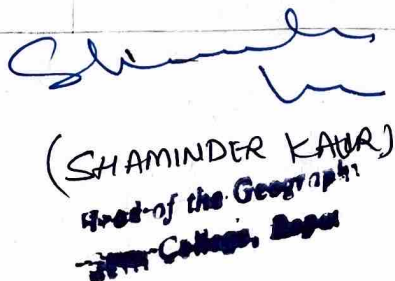 (SHAMINDER KAUR)
Head of the Geography
College,